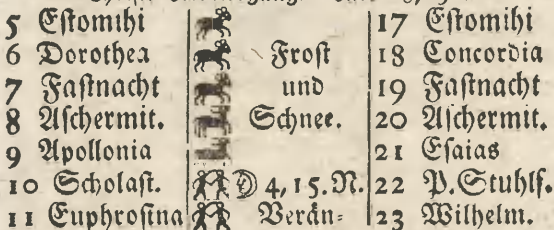 5 Eſtomihi 17 Eſtomihi
6 Dorothea Froſt 18 Concordia
7 Faſtnacht und 19 Faſtnacht
8 Aſchermit. Schnee. 20 Aſchermit.
9 Apollonia 21 Eſaias
10 Scholaſt. 4, 15. N. 22 P. Stuhlf.
11 Euphroſina Verän⸗ 23 Wilhelm.